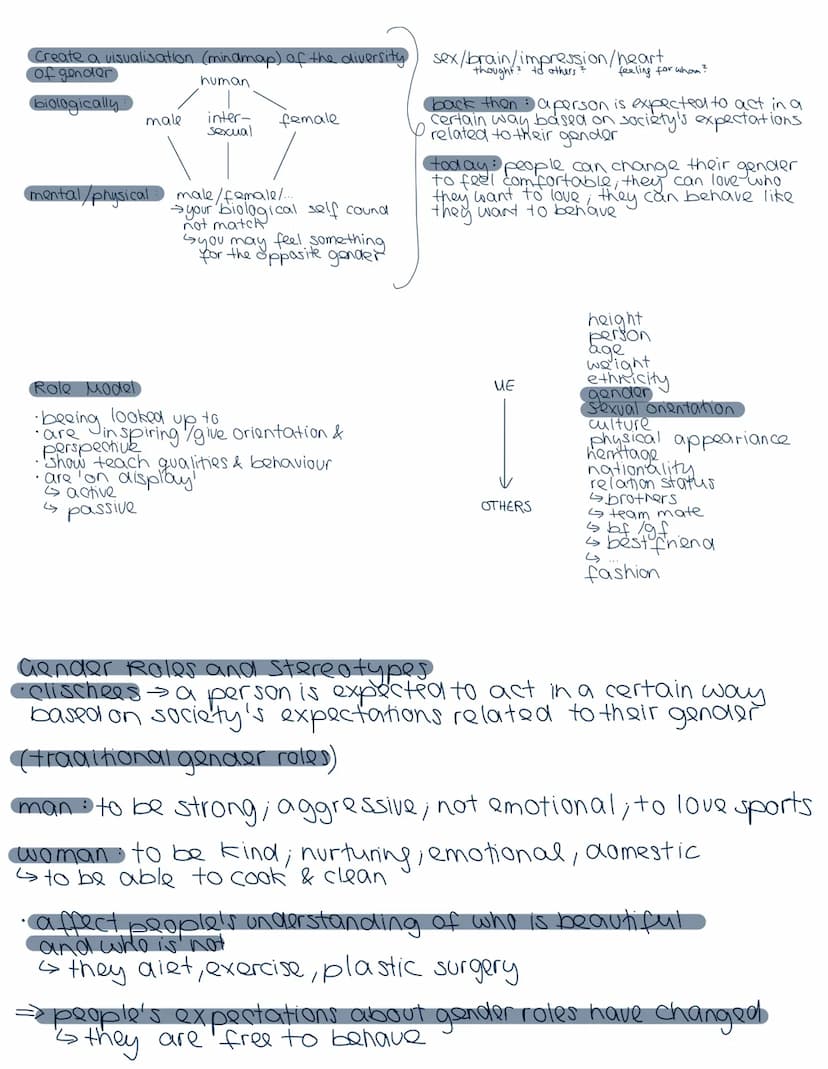 Create a visualisation (mindmap) of the diversity
of gender
human
biologically:
male inter- female
sexual
mental/physical male/female/...
→ your biological self cound
not match
↳ you may feel something
for the opposite gender
sex/brain/impression/heart
thought? to others? feeling for whom?
back then: a person is expected to act in a
certain way based on society's expectations
related to their gender
today: people can change their gender
to feel comfortable, they can love who
they want to love, they can behave like
they want to behave
Role Model
· beeing looked up to
· are inspiring/give orientation &
perspective
· show teach qualities & behaviour
· are 'on display'
↳ active
↳ passive
ME
OTHERS
height
person
age
weight
ethnicity
gender
sexual orientation
culture
physical appeariance
heritage
nationality
relation status
↳ brothers
↳ team mate
↳ bf/gf
↳ best friend
↳ ...
fashion
Gender Roles and Stereotypes
· clischees → a person is expected to act in a certain way
based on society's expectations related to their gender
(traditional gender roles)
man: to be strong; aggressive; not emotional; to love sports
woman: to be kind; nurturing; emotional, domestic
↳ to be able to cook & clean
· affect people's understanding of who is beautiful
and who is not
↳ they diet, exercise, plastic surgery
⇒ people's expectations about gender roles have changed
↳ they are 'free to behave'